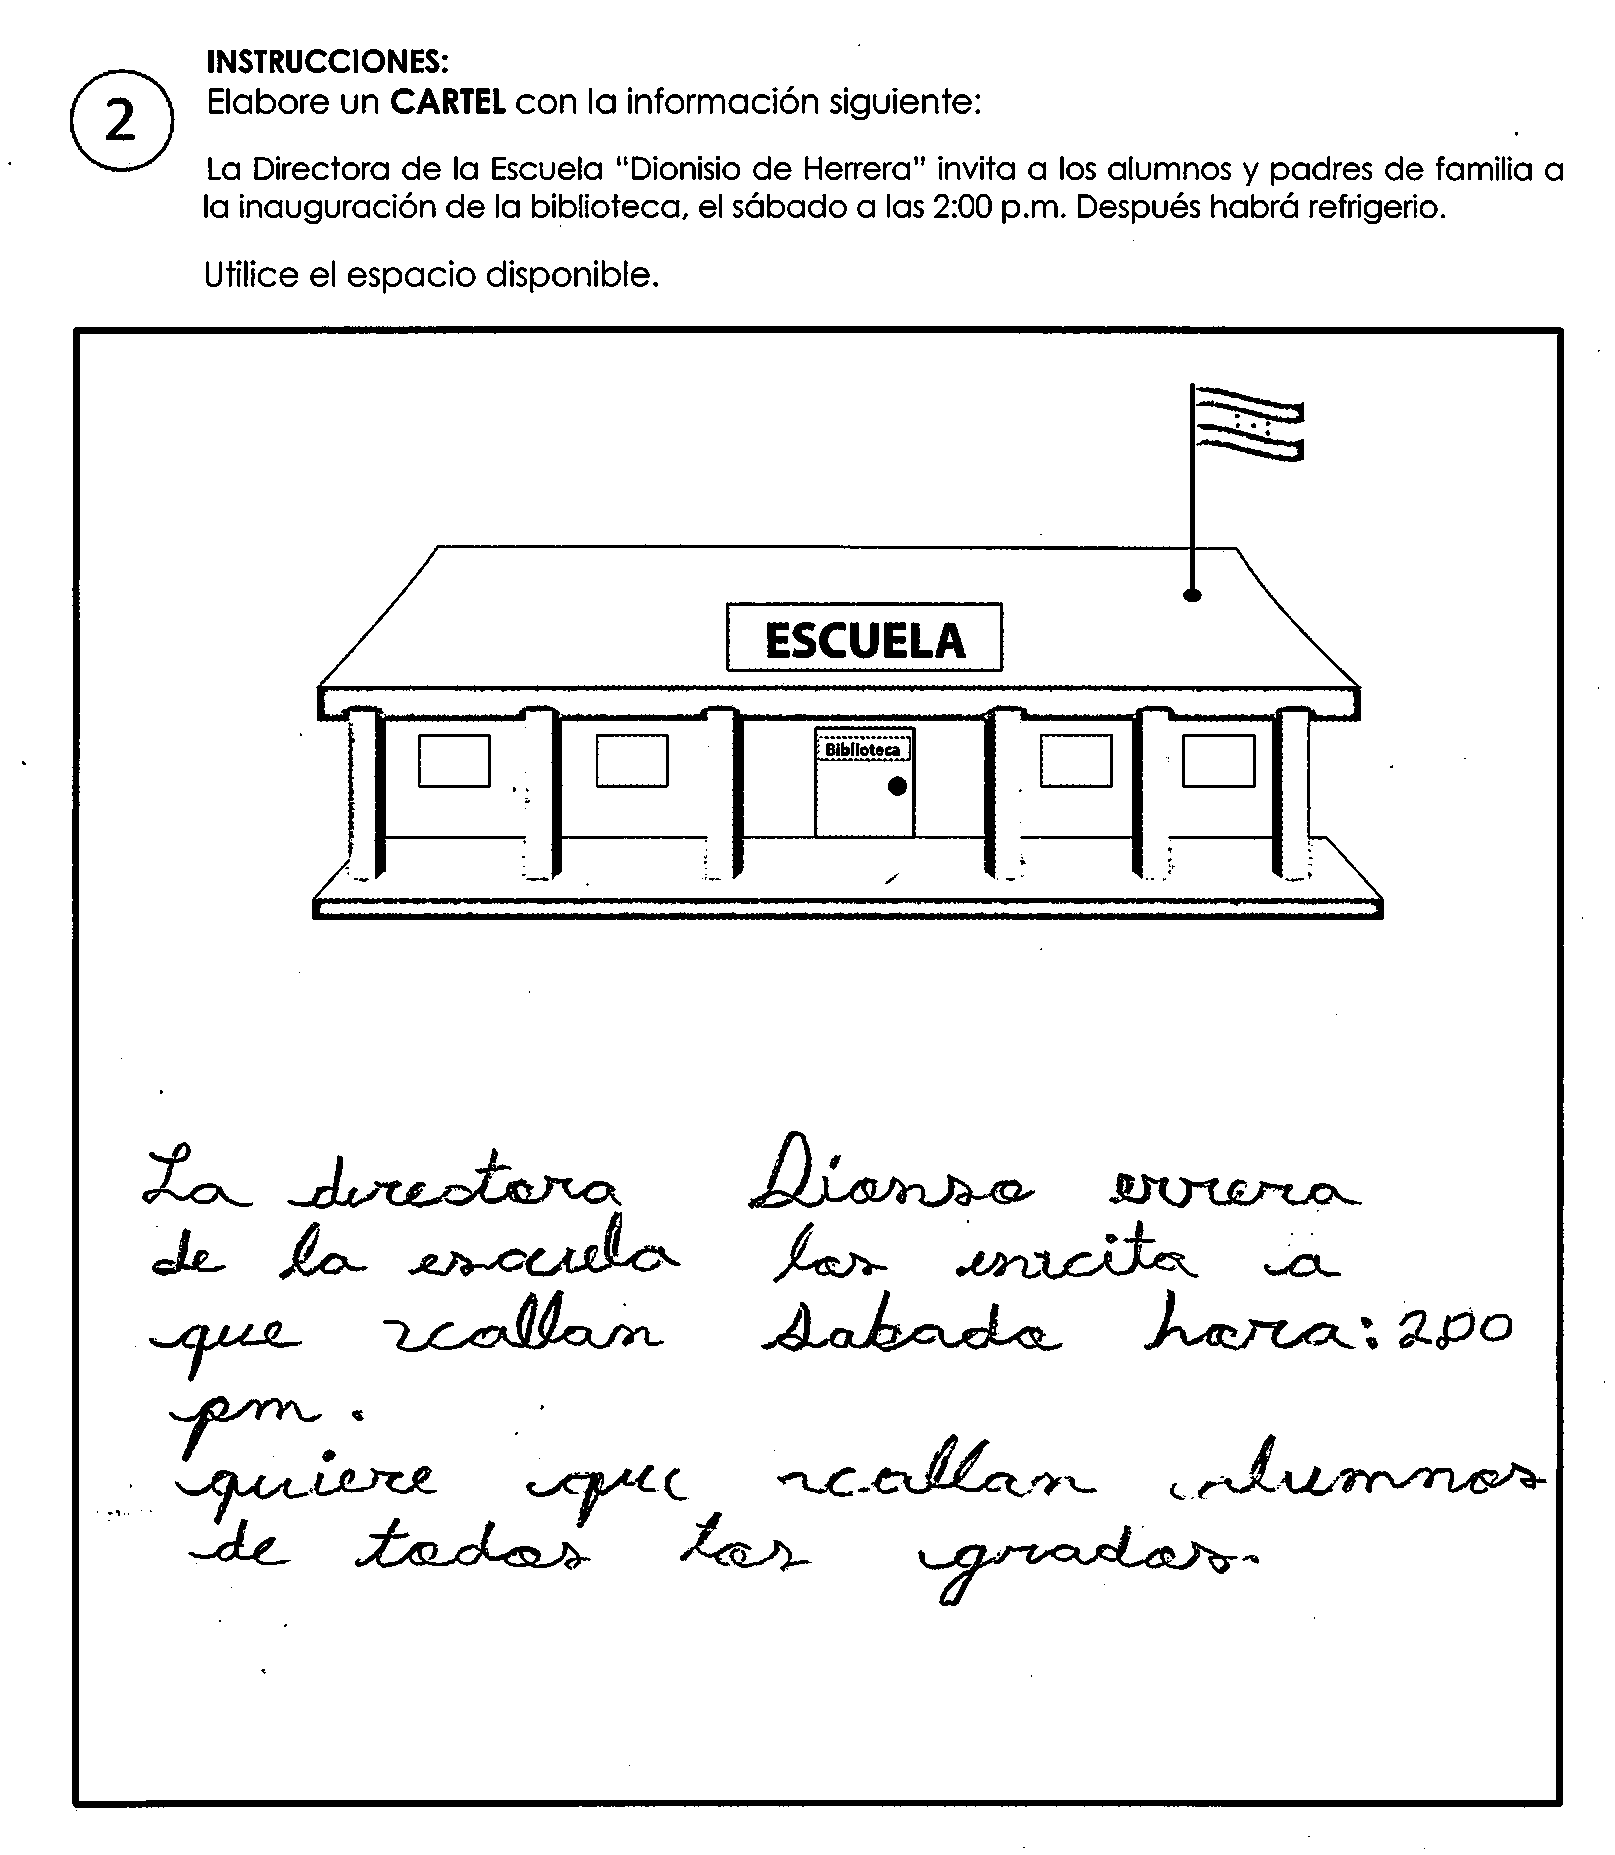 INSTRUCCIONES:
2
Elabore un CARTEL con la información siguiente:
La Directora de la Escuela "Dionisio de Herrera" invita a los alumnos y padres de familia a
la inauguración de la biblioteca, el sábado a las 2:00 p.m. Después habrá refrigerio.
Utilice el espacio disponible.
ESCUELA
Biblioteca
La directora Dionso errera
de la escuela los invita a
que vallan sabado hora: 2:00
pm.
quiere que vallan alumnos
de todos los grados.